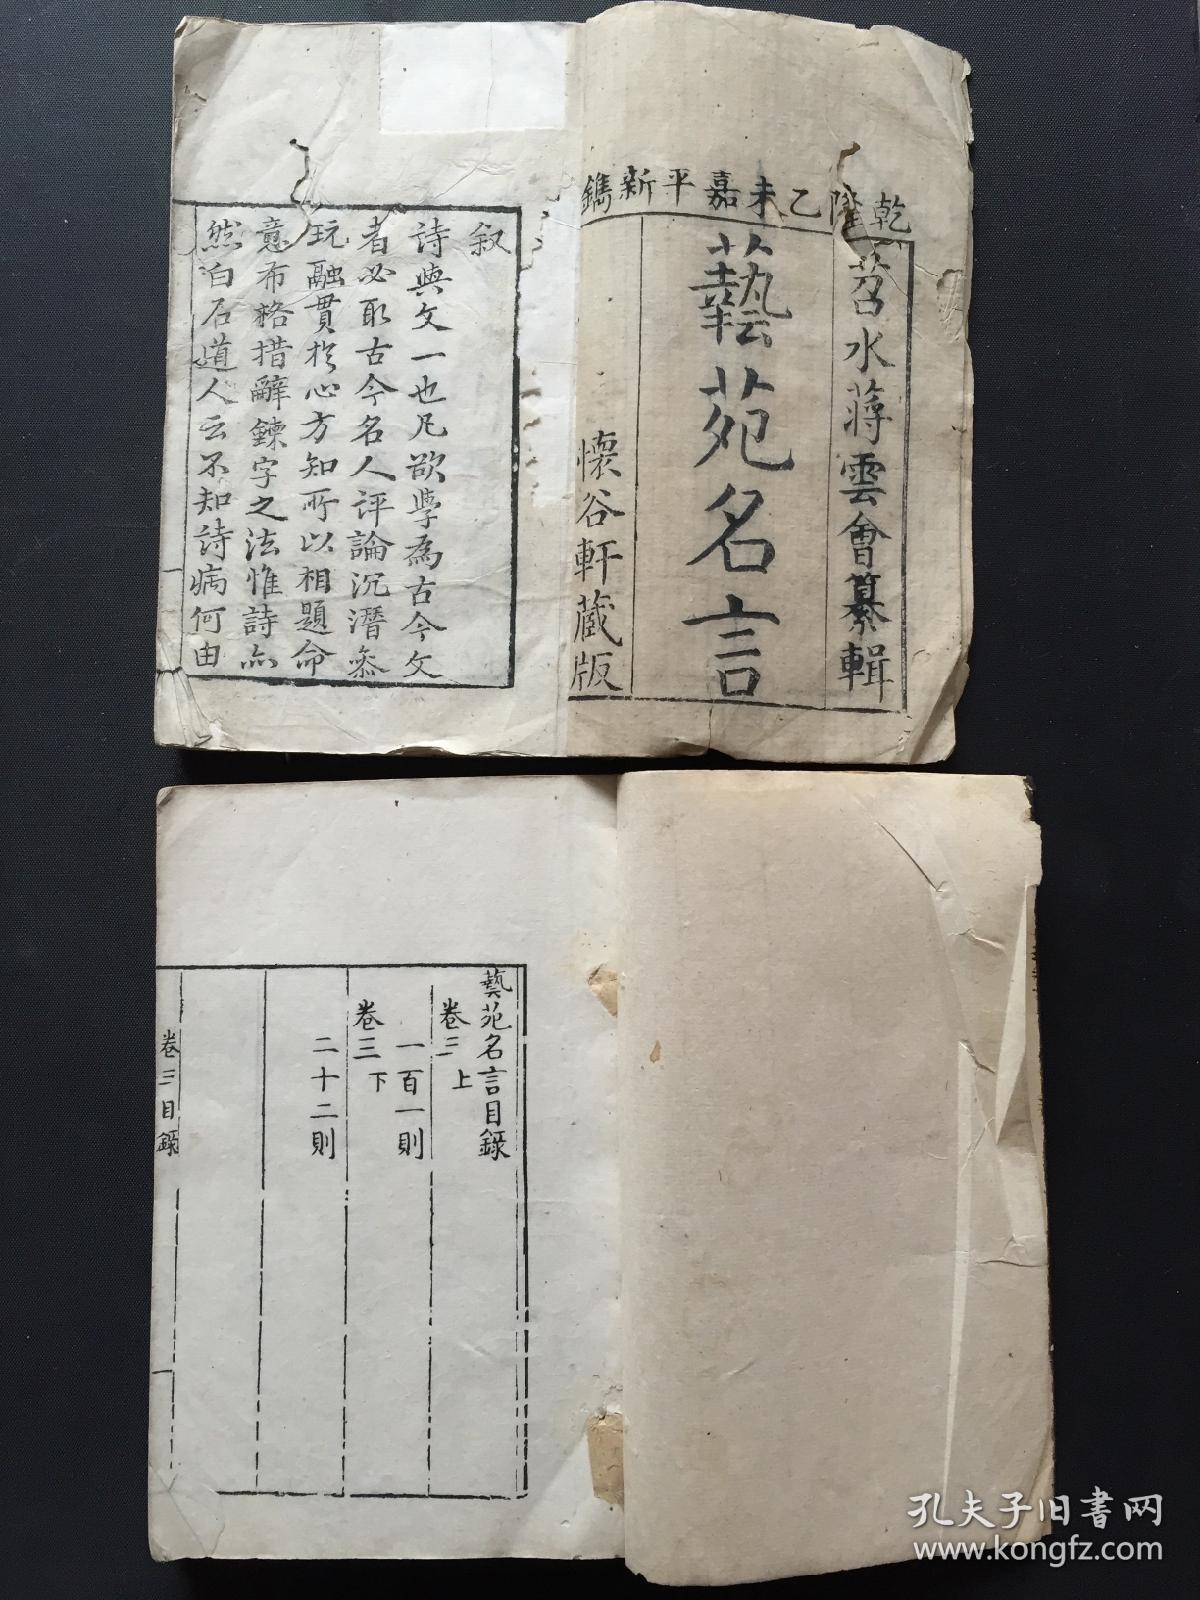 乾隆乙未嘉平新鐫
苕水蔣雲會纂輯
藝苑名言
懷谷軒蔵版
叙
詩與文一也凡欲學為古今文
者必取古今名人評論沉潛叅
玩融貫於心方知所以相題命
意布格措辭鍊字之法惟詩亦
然白石道人云不知詩病何由
藝苑名言目錄
卷三上
一百一則
卷三下
二十二則
卷三目錄
孔夫子旧书网
www.kongfz.com